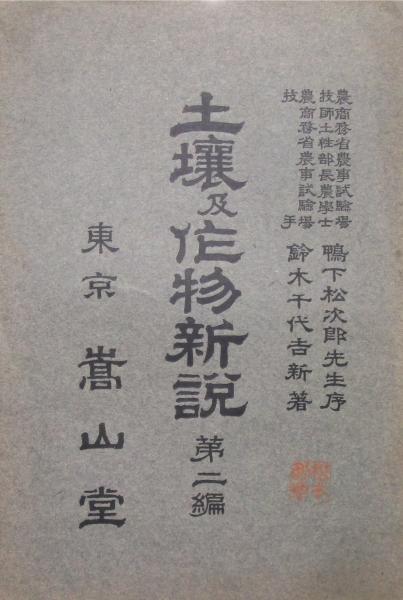 農商務省農事試驗場
技師土性部長農學士
鴨下松次郎先生序
農商務省農事試驗場
技手
鈴木千代吉新著
土壤及作物新説 第二編
東京 嵩山堂